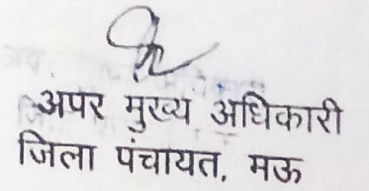 अपर मुख्य अधिकारी
जिला पंचायत, मऊ